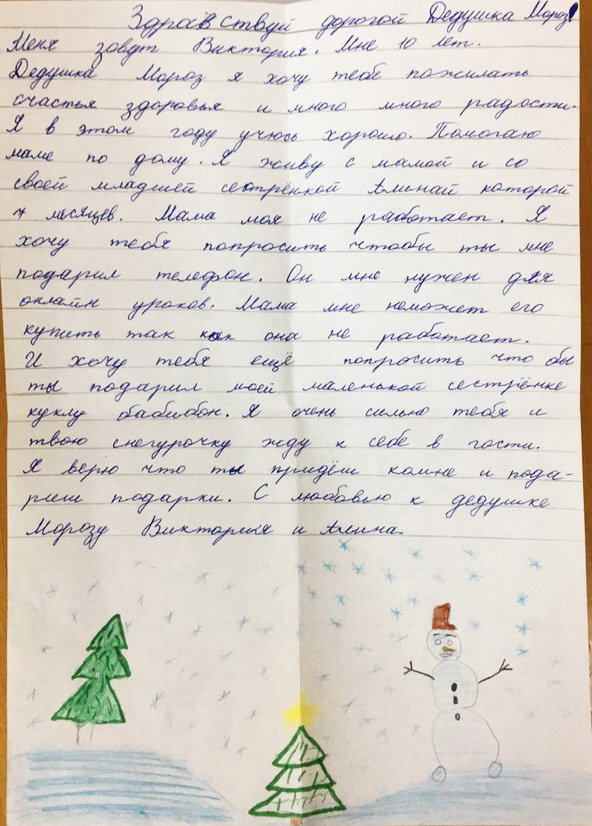 Здравствуй дорогой Дедушка Мороз!
Меня зовут Виктория. Мне 10 лет.
Дедушка Мороз я хочу тебе пожилать
счастья здоровья и много много радости.
Я в этом году учюсь хорошо. Помогаю
маме по дому. Я живу с мамой и со
своей младшей сестрёнкой Алинай которой
7 месяцев. Мама моя не работает. Я
хочу тебя попросить чтобы ты мне
подарил телефон. Он мне нужен для
онлайн уроков. Мама мне неможет его
купить так как она не работает.
И хочу тебя ещё попросить что бы
ты подарил моей маленькой сестрёнке
куклу бабибон. Я очень сильно тебя и
твою снегурочку жду к себе в гости.
Я верю что ты придёш комне и пода-
риш подарки. С любовью к дедушке
Морозу Виктория и Алина.